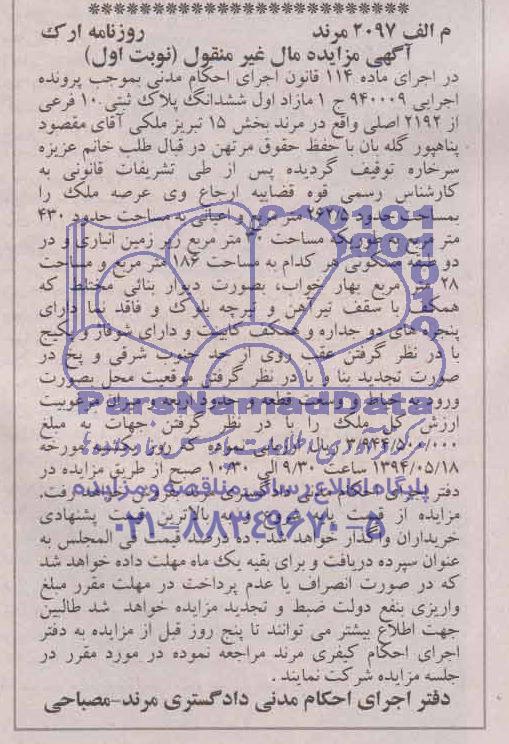 م الف ۲۰۹۷ مرند روزنامه ارک
آگهی مزایده مال غیر منقول (نوبت اول)
در اجرای ماده ۱۱۴ قانون اجرای احکام مدنی بموجب پرونده
اجرایی ۹۴۰۰۰۹ ج ۱ مازاد اول ششدانگ پلاک ثبتی ۱۰ فرعی
از ۲۱۹۲ اصلی واقع در مرند بخش ۱۵ تبریز ملکی آقای مقصود
پناهپور گله بان با حفظ حقوق مرتهن در قبال طلب خانم عزیزه
سرخاره توقیف گردیده پس از طی تشریفات قانونی به
کارشناس رسمی قوه قضاییه ارجاع وی عرصه ملک را
بمساحت حدود ۲۶۷/۵ متر مربع و اعیانی به مساحت حدود ۴۳۰
متر مربع به طوریکه مساحت متر مربع زیر زمین انباری و در
دو طبقه مسکونی هر کدام به مساحت ۱۸۶ متر مربع و مساحت
۲۸ متر مربع بهار خواب، بصورت دیوار بنائی مختلط که
همکف با سقف تیرآهن و تیرچه بلوک و فاقد نما دارای
پنجره های دو جداره و همکف کابینت و دارای شوفاژ و پکیج
با در نظر گرفتن عقب روی از حد جنوب شرقی و پخ در
صورت تجدید بنا و با در نظر گرفتن موقعیت محل بصورت
ورود به حیاط و وسعت قطعه و حدود اربعه و میزان مرغوبیت
ارزش کل ملک را با در نظر گرفتن جهات به مبلغ
۳/۹۴۴/۵۰۰/۰۰۰ ریال ارزیابی نموده که روز یکشنبه مورخه
۱۳۹۴/۰۵/۱۸ ساعت ۹/۳۰ الی ۱۰/۳۰ صبح از طریق مزایده در
دفتر اجرای احکام مدنی دادگستری بفروش خواهد رفت.
مزایده از قیمت پایه شروع و به بالاترین قیمت پشنهادی
خریداران واگذار خواهد شد. ده درصد قیمت فی المجلس به
عنوان سپرده دریافت و برای بقیه یک ماه مهلت داده خواهد شد
که در صورت انصراف یا عدم پرداخت در مهلت مقرر مبلغ
واریزی بنفع دولت ضبط و تجدید مزایده خواهد شد طالبین
جهت اطلاع بیشتر می توانند تا پنج روز قبل از مزایده به دفتر
اجرای احکام کیفری مرند مراجعه نموده در مورد مقرر در
جلسه مزایده شرکت نمایند.
دفتر اجرای احکام مدنی دادگستری مرند-مصباحی
ParsNamadData
پایگاه اطلاع رسانی مناقصه و مزایده
۰۲۱-۸۸۳۴۹۶۷۰-۵